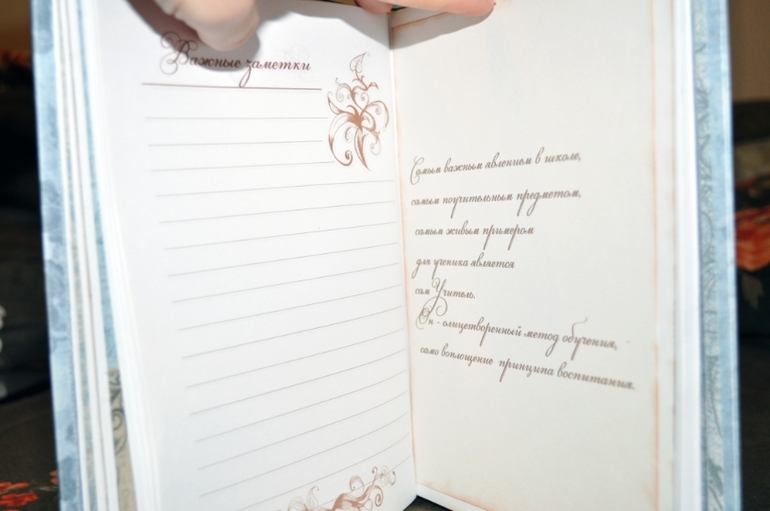 Важные заметки
Самым важным явлением в школе,
самым поучительным предметом,
самым живым примером
для ученика является
сам Учитель.
Он - олицетворенный метод обучения,
само воплощение принципа воспитания.